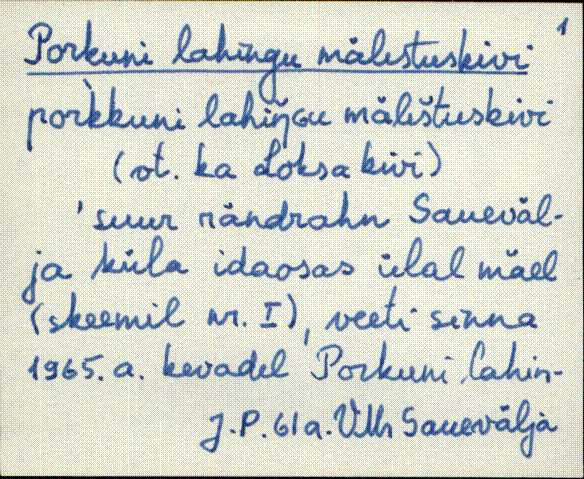 1
Porkuni lahingu mälestuskivi
pork̀kuni lahiŋ̆Gu mälèštuskivi
(vt. ka Loksa kivi)
'suur rändrahn Saueväl-
ja küla idaosas ülal mäel
(skeemil nr. I), veeti sinna
1965. a. kevadel Porkuni lahin-
J.P. 61 a. VMr Sauevälja